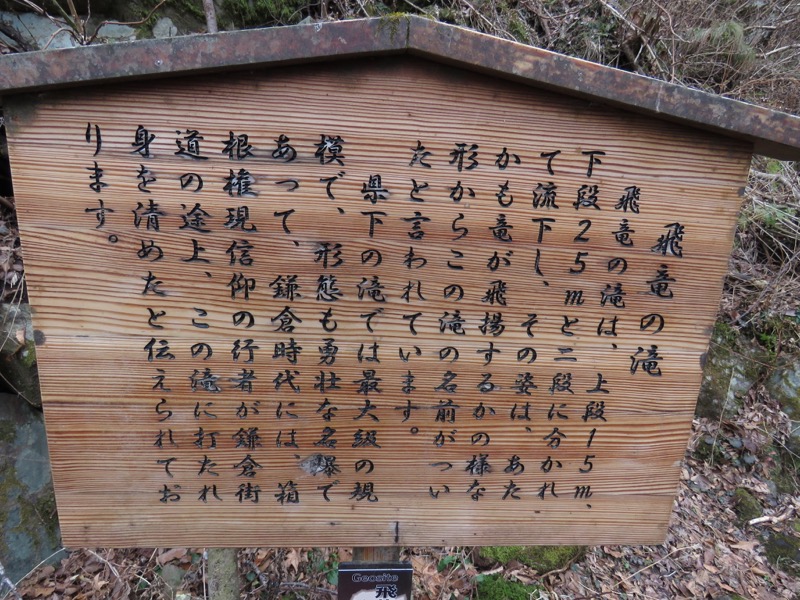 飛竜の滝
飛竜の滝は、上段15m、
下段25mと二段に分かれ
て流下し、その姿は、あた
かも竜が飛揚するかの様な
形からこの滝の名前がつい
たと言われています。
県下の滝では最大級の規
模で、形態も勇壮な名瀑で
あって、鎌倉時代には、箱
根権現信仰の行者が鎌倉街
道の途上、この滝に打たれ
身を清めたと伝えられてお
ります。
Geosite
飛